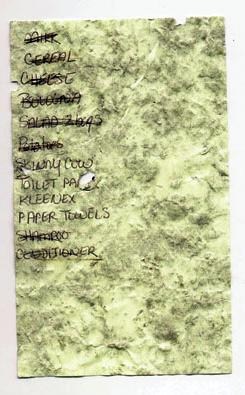 MILK
CEREAL
CHEESE
BOLOGNA
SALAD 2 bags
Potatoes
SKINNY COW
TOILET PA
KLEENEX
PAPER TOWELS
SHAMPOO
CONDITIONER